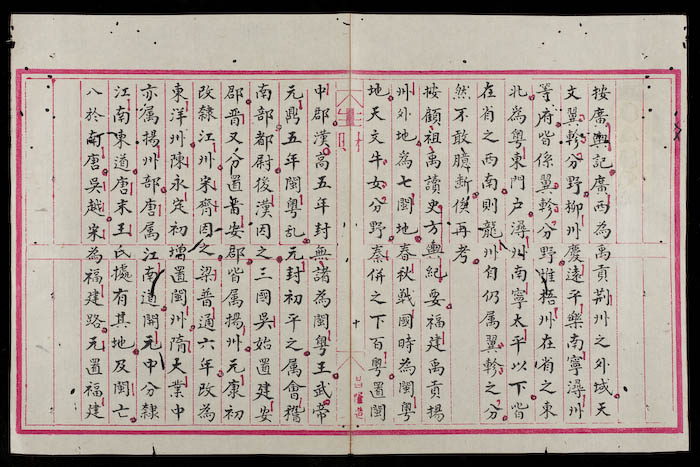 按廣輿記廣西為禹貢荊州之外域天
文翼軫分野柳州慶遠平樂南寧潯州
等府皆係翼軫分野惟梧州在省之東
北為粵東門戶潯州南寧太平以下皆
在省之西南則龍州自仍属翼軫之分
然不敢臆斷俟再考
按顧祖禹讀史方輿紀要福建禹貢揚
州外地為七閩地春秋戰國時為閩粵
地天文牛女分野秦併之下百粵置閩
十
中郡漢高五年封無諸為閩粵王武帝
元鼎五年閩粵記元封初平之属會稽
南部都尉後漢因之三國吳始置建安
郡晉又分置晉安郡皆属揚州元康初
改隸江州宋齊因之梁普通六年改為
東洋州陳永定初增置閩州隋大業中
亦属揚州部唐属江南道開元中分隸
江南東道唐末王氏據有其地及閩亡
入於南唐吳越宋為福建路元置福建